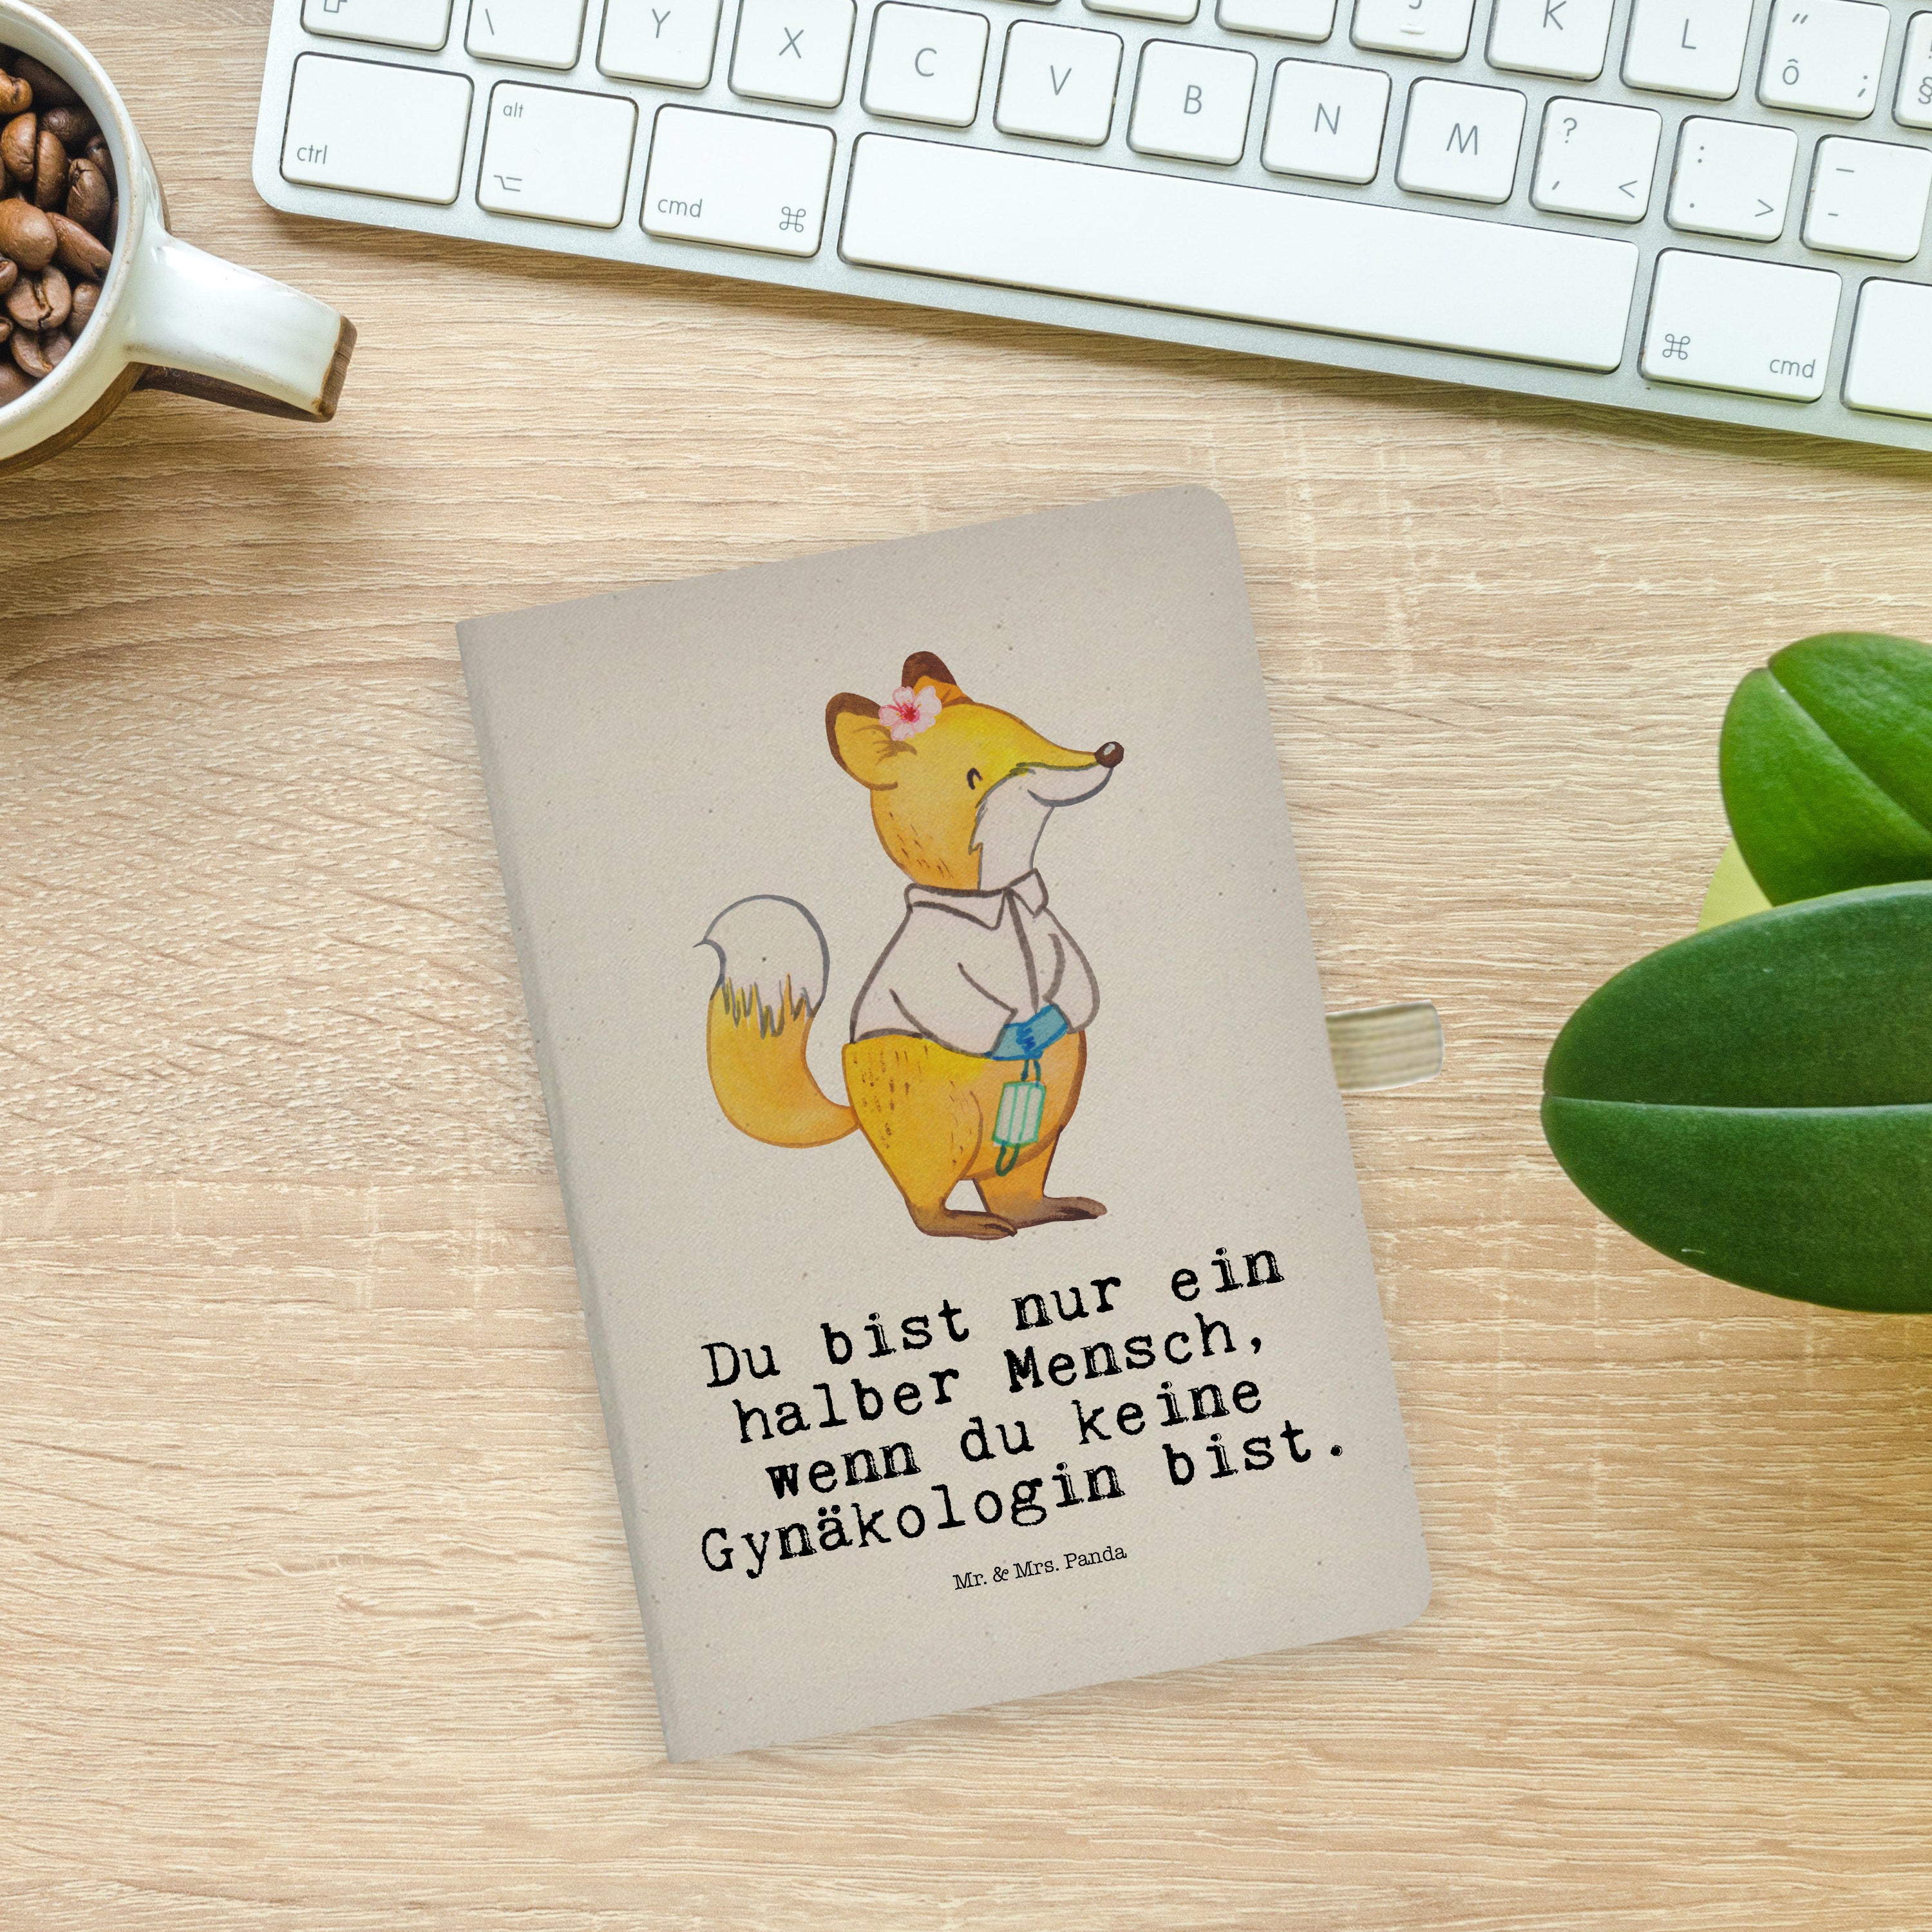 \ Y X C V B N M K L "
ô ;
ctrl alt cmd ⌘ ? , < : . > _ -
⌘ cmd
Du bist nur ein
halber Mensch,
wenn du keine
Gynäkologin bist.
Mr. & Mrs. Panda